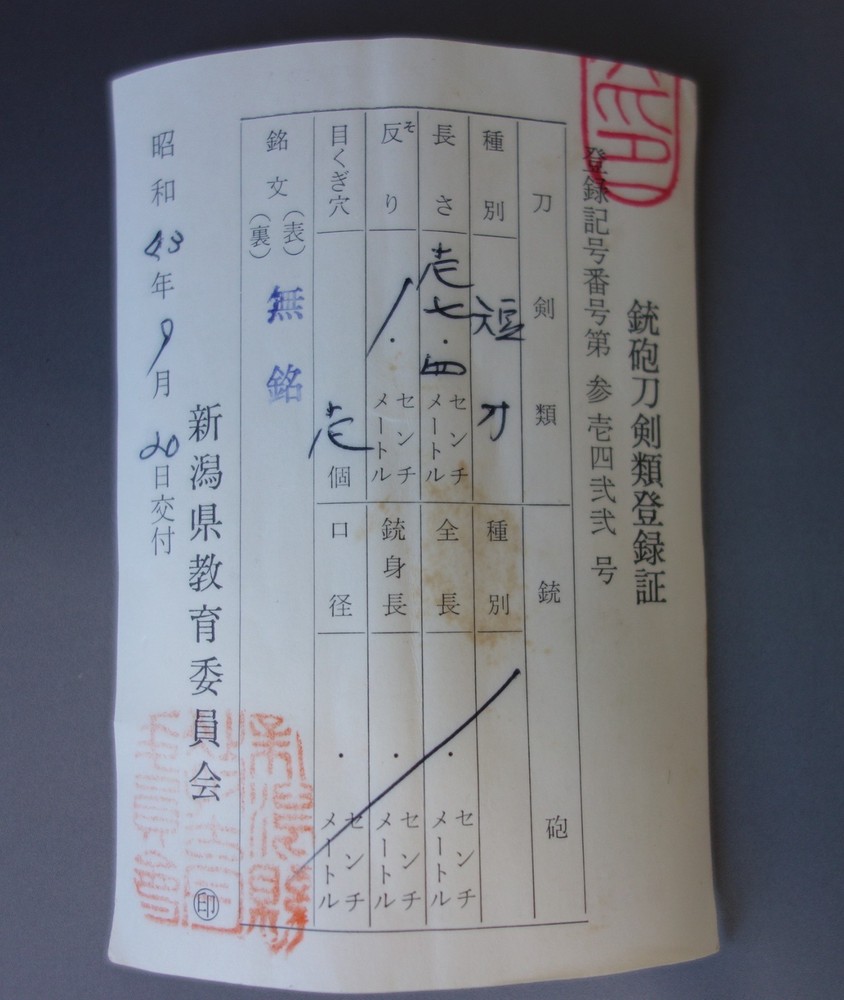 銃砲刀剣類登録証
登録記号番号第 参壱四弐弐 号
刀剣類
種別 短刀
長さ 壱七.四 センチメートル
反り そ . センチメートル
目くぎ穴 壱 個
銃砲
種別
全長 . センチメートル
銃身長 . センチメートル
口径 . センチメートル
銘文 (表) (裏) 無銘
昭和43年9月20日交付
新潟県教育委員会 印